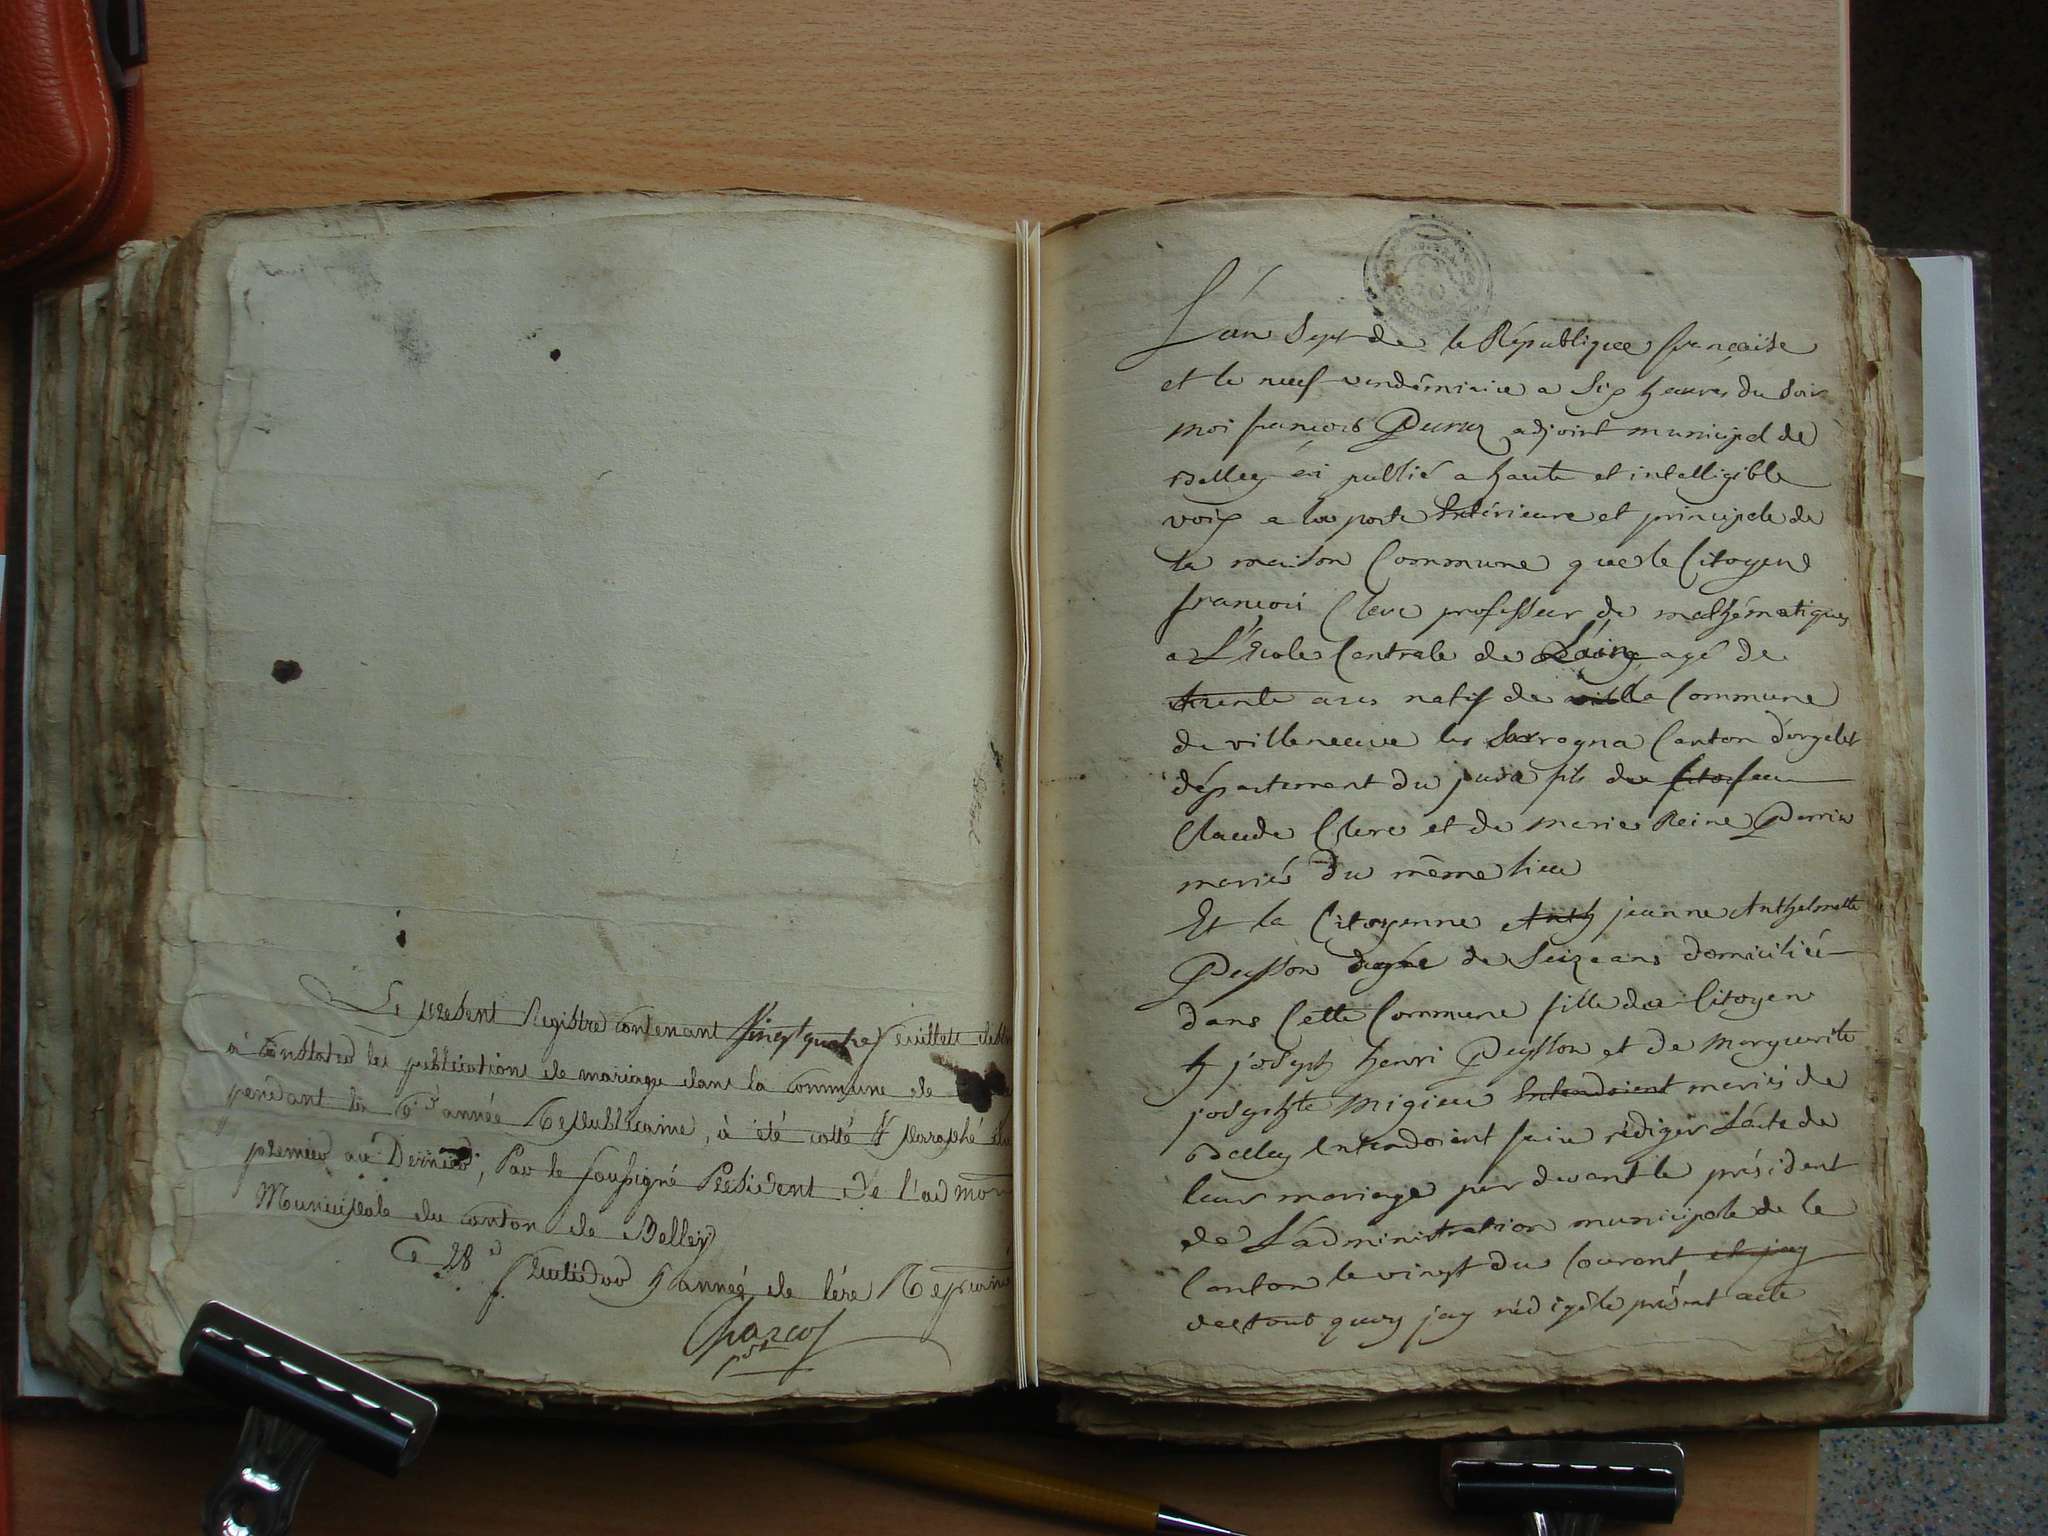 Le present Registre contenant Vingt quatre feuillets destiné
à constater les publications de mariage dans la commune de
pendant la 6e année Republicaine, à été cotté & paraphé du
premier au Dernier, Par le soussigné President de l'admon
Municipale du canton de Belley
Ce 28e fructidor 5 année de l'ére Repcaine
pdt
L'an Sept de la République française
et le neuf vendémiaire a Six heures du Soir
moi françois adjoint municipal de
Belley ai publié a haute et intelligible
voix a la porte Extérieure et principale de
la maison Commune que le Citoyen
françois Clerc professeur de mathématiques
a L'École Centrale de L'ain agé de
trente ans natif de la Commune
de villeneuve les Sarrogna Canton d'orgelet
département du jura fils de feu
Claude Clerc et de marie Reine Perrin
mariés du même lieu
Et la Citoyenne Anth jeanne Anthelmette
Peysson agée de Seize ans domiciliée
dans Cette Commune fille du Citoyen
joseph henri Peysson et de Marguerite
josephte Migieu Entendoient mariés de
Belley Entendoient faire rédiger L'acte de
leur mariage par devant le président
de L'administration municipale de ce
Canton le vingt du Courant, et jay
de tout quoy jay rédigé le présent acte